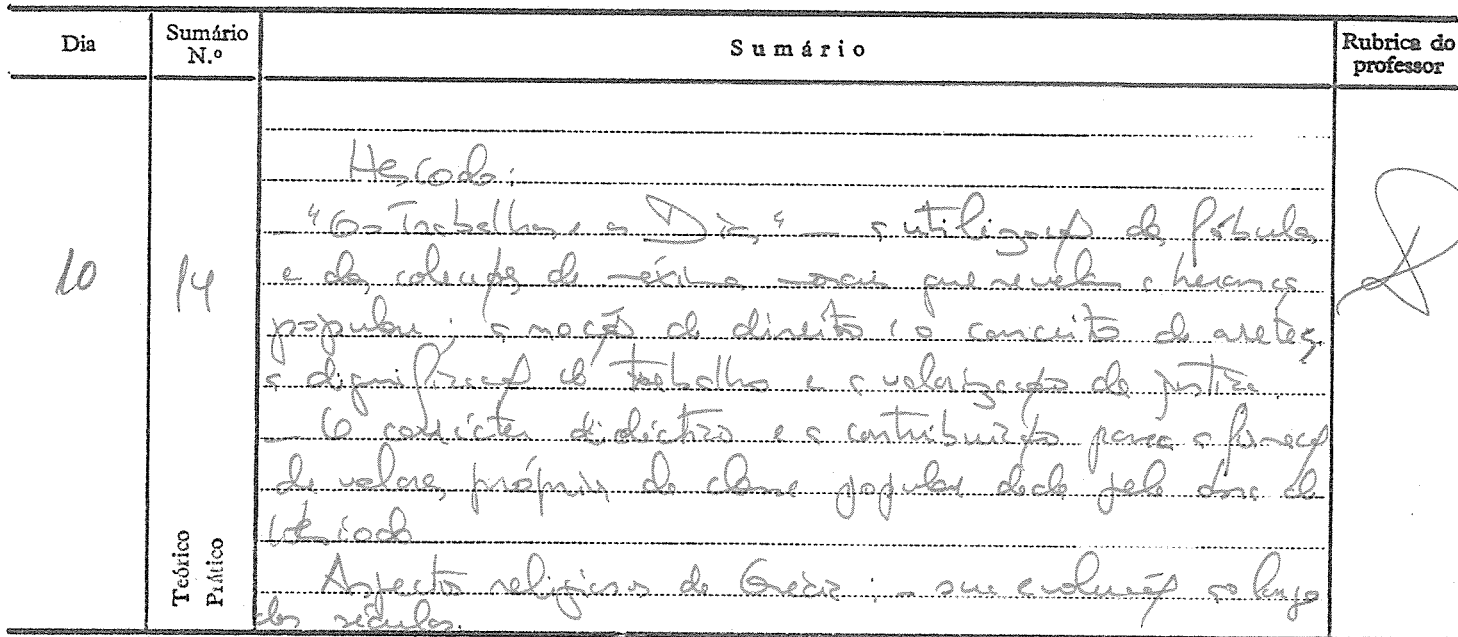 Dia
Sumário N.º
Sumário
Rubrica do professor
10
14
Hesíodo:
- "Os Trabalhos e os Dias" - a utilização da fábula
e da colecção de máximas morais que revelam a herança
popular; a noção de direito; o conceito de arete;
a dignificação do trabalho e a valorização da justiça.
- O carácter didáctico e a contribuição para a
de valores próprios da classe popular dada pela obra de
Hesíodo
Aspectos religiosos da Grécia: a sua evolução ao longo
dos séculos.
Teórico
Prático